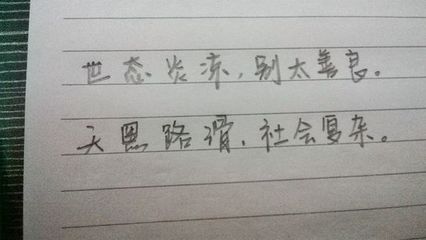 世态炎凉，别太善良。
天黑路滑，社会复杂。